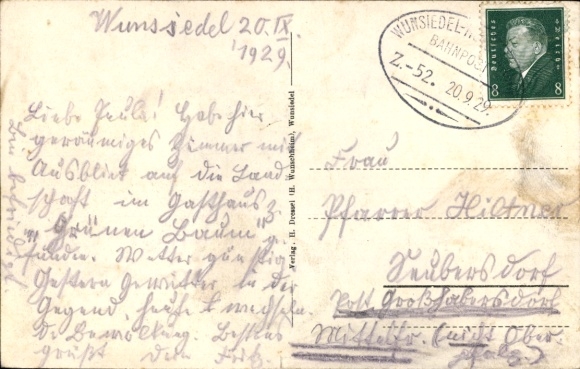 Wunsiedel 20.IX.
1929.
Liebe Paula! Habe hier
geräumiges Zimmer mit
Ausblick auf die Land
schaft im Gasthaus z.
"Grünen Baum" ge
funden. Wetter günstig
Gestern Gewitter in der
Gegend, heute wechseln
de Bewölkung. Bestens
grüßt Dein Fritz.
Verlag. H. Dressel (H. Wunschheim), Wunsiedel
WUNSIEDEL-
BAHNPOST
Z.-52. 20.9.29.
Deutsches Reich
8 8
Frau
Pfarrer Hiltner
Seubersdorf
Post Großhabersdorf
Mittelfr. (nicht Ober-
pfalz.)